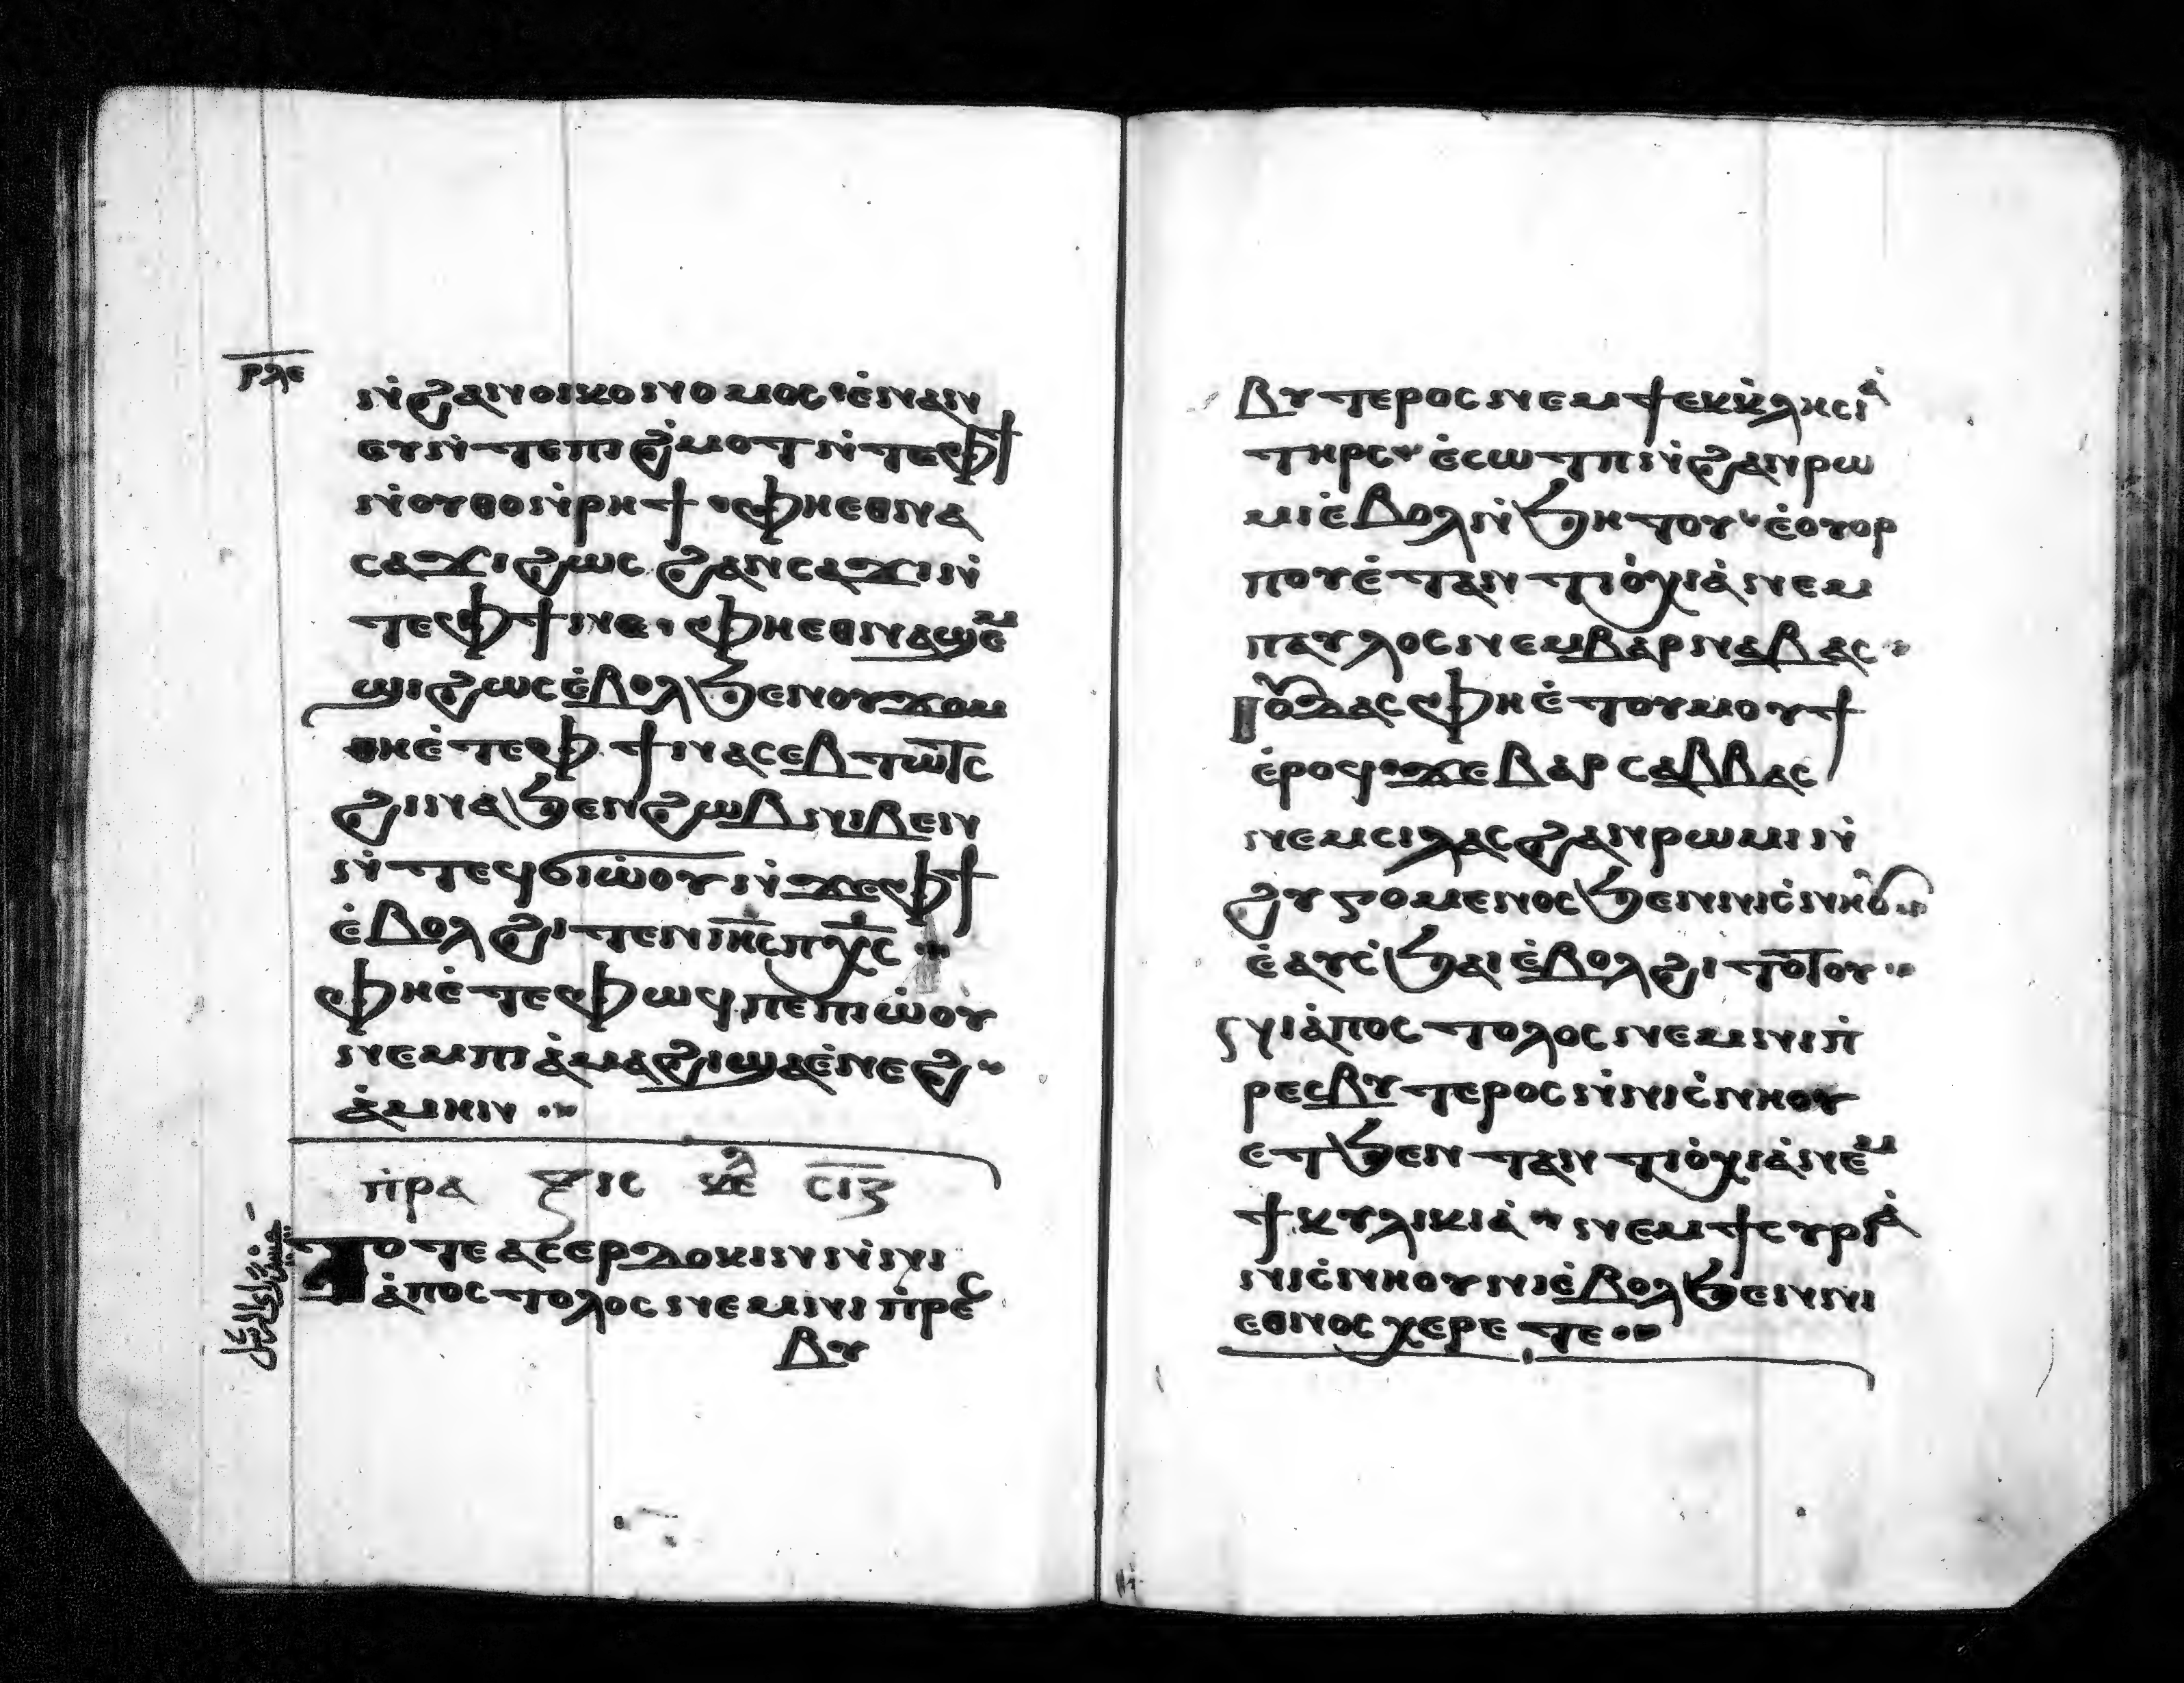 ⲣⲗⲉ
ⲛ̇ϩⲁⲛⲟⲓⲕⲟⲛⲟⲙⲟⲥ ⲉ̇ⲛⲁⲛ
ⲉⲩ ⲛ̇ⲧⲉ ⲡⲓϩ̇ⲙⲟⲧ ⲛ̇ⲧⲉ ⲫϯ
ⲛ̇ⲟⲩⲑⲟ ⲛ̇ⲣⲏϯ · ⲫⲏ ⲉⲑⲛⲁ
ⲥⲁϫⲓ ϩⲱⲥ ϩⲁⲛⲥⲁϫⲓ ⲛ̇
ⲧⲉ ⲫϯ ⲛⲉ · ⲫⲏ ⲉⲑⲛⲁϣⲉⲙ
ϣⲓ ϩⲱⲥ ⲉ̇ⲃⲟⲗ ϧⲉⲛ ⲟⲩϫⲟⲙ
ⲑⲏ ⲉ̇ⲧⲉ ⲫϯ ⲛⲁⲥⲉⲃⲧⲱⲧⲥ
ϩⲓⲛⲁ ϧⲉⲛ ϩⲱⲃ ⲛⲓⲃⲉⲛ
ⲛ̇ⲧⲉϥϭⲓⲱ̇ⲟⲩ ⲛ̇ϫⲉ ⲫϯ
ⲉ̇ⲃⲟⲗ ϩⲓⲧⲉⲛ ⲓⲏⲥ ⲡⲭⲥ ··
ⲫⲏ ⲉ̇ⲧⲉ ⲫⲱϥ ⲡⲉ ⲡⲓⲱ̇ⲟⲩ
ⲛⲉⲙ ⲡⲓⲁ̇ⲙⲁϩⲓ ϣⲁ ⲉ̇ⲛⲉϩ ··
ⲁ̇ⲙⲏⲛ ··
ⲡ̇ⲣⲁⲝⲓⲥ ⲕⲉⲗ ⲥⲓⲍ
ⲧⲟⲧⲉ ⲁⲥⲉⲣⲇⲟⲕⲓⲛ ⲛ̇ⲛⲓ
ⲁ̇ⲡⲟⲥⲧⲟⲗⲟⲥ ⲛⲉⲙ ⲛⲓⲡ̇ⲣⲉⲥ
ⲃⲩ
ⲃⲩⲧⲉⲣⲟⲥ ⲛⲉⲙ ϯⲉⲕⲕ̇ⲗⲏⲥⲓⲁ̇
ⲧⲏⲣⲥ · ⲉ̇ⲥⲱⲧⲡ ⲛ̇ϩⲁⲛⲣⲱ
ⲙⲓ ⲉ̇ⲃⲟⲗ ⲛ̇ϧⲏⲧⲟⲩ · ⲉ̇ⲟⲩⲟⲣ
ⲡⲟⲩ ⲉ̇ⲧⲁⲛⲧⲓⲟ̇ⲭⲓⲁ̇ ⲛⲉⲙ
ⲡⲁⲩⲗⲟⲥ ⲛⲉⲙ ⲃⲁⲣⲛⲁⲃⲁⲥ ··
ⲓⲟⲩⲇⲁⲥ ⲫⲏ ⲉ̇ⲧⲟⲩⲙⲟⲩϯ
ⲉ̇ⲣⲟϥ · ϫⲉ ⲃⲁⲣⲥⲁⲃⲃⲁⲥ
ⲛⲉⲙ ⲥⲓⲗⲁⲥ ϩⲁⲛⲣⲱⲙⲓ ⲛ̇
ϩⲩⲅⲟⲙⲉⲛⲟⲥ ϧⲉⲛ ⲛⲓⲥ̇ⲛⲏⲟⲩ ··
ⲉ̇ⲁⲩⲥ̇ϧⲁⲓ ⲉ̇ⲃⲟⲗ ϩⲓⲧⲟⲧⲟⲩ ··
ⲛⲓⲁ̇ⲡⲟⲥⲧⲟⲗⲟⲥ ⲛⲉⲙ ⲛⲓⲡ̇
ⲣⲉⲥⲃⲩⲧⲉⲣⲟⲥ ⲛ̇ⲛⲓⲥ̇ⲛⲏⲟⲩ
ⲉⲧϧⲉⲛ ⲧⲁⲛⲧⲓⲟ̇ⲭⲓⲁ̇ ⲛⲉⲙ
ϯⲕⲩⲗⲓⲕⲓⲁ̇ ·· ⲛⲉⲙ ϯⲥⲩⲣⲓⲁ̇
ⲛⲓⲥ̇ⲛⲏⲟⲩ ⲛⲓⲉ̇ⲃⲟⲗ ϧⲉⲛ ⲛⲓ
ⲉⲑⲛⲟⲥ ⲭⲉⲣⲉⲧⲉ ··